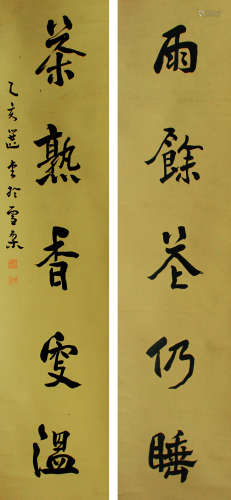 雨餘花仍睡
茶熟香雯溫
乙亥選堂於雪泉